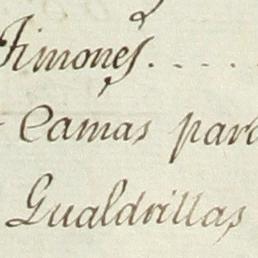 Timones.....
Camas para
Gualdrillas